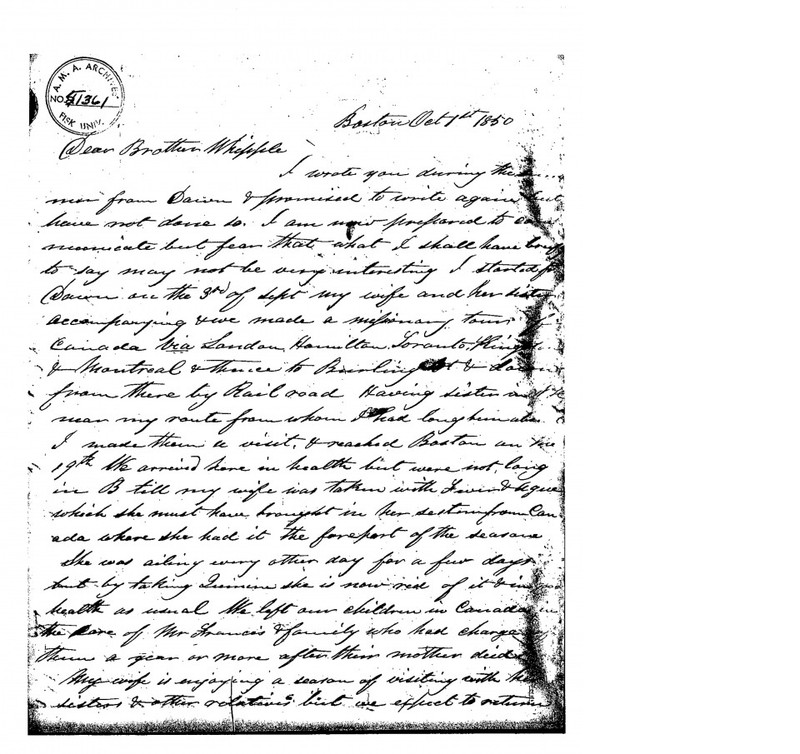 A. M. A. ARCHIVES
NO. 51361
FISK UNIV.
Boston Oct 1st 1850
Dear Brother Whipple
I wrote you during the
mer from Dawn & promised to write again but
have not done so. I am now prepared to com
municate but fear that what I shall have
to say may not be very interesting I started
Dawn on the 3rd of Sept my wife and her sister
accompanying & we made a missionary tour of
Canada via London Hamilton Toronto
& Montreal & thence to
from there by Rail road Having sisters
near my route from whom I had long been
I made them a visit, & reached Boston on the
19th We arrived here in health but were not long
in B till my wife was taken with Fever & Ague
which she must have brought in her system from Can
ada where she had it the forepart of the season
She was ailing every other day for a few days
but by taking Quinine she is now rid of it & in
health as usual We left our children in Canada in
the care of Mr Francis & family who had charge of
them a year or more after their mother died
My wife is enjoying a season of visiting with her
sisters & other relatives but we expect to return